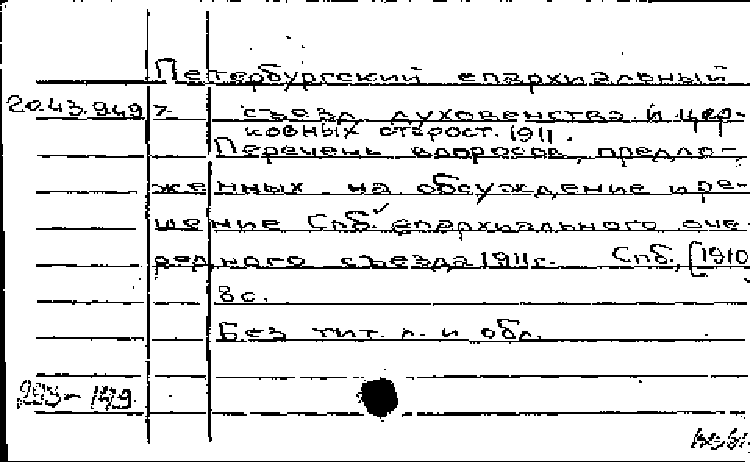 Петербургский епархиальный
20.43.949 7 съезд духовенства и цер-
ковных старост. 1911.
Перечень вопросов, предло-
женных на обсуждение и ре-
шение Спб. епархиального оче-
редного съезда 1911 г. Спб, [1910
8 с.
Без тит. л. и обл.
203-149